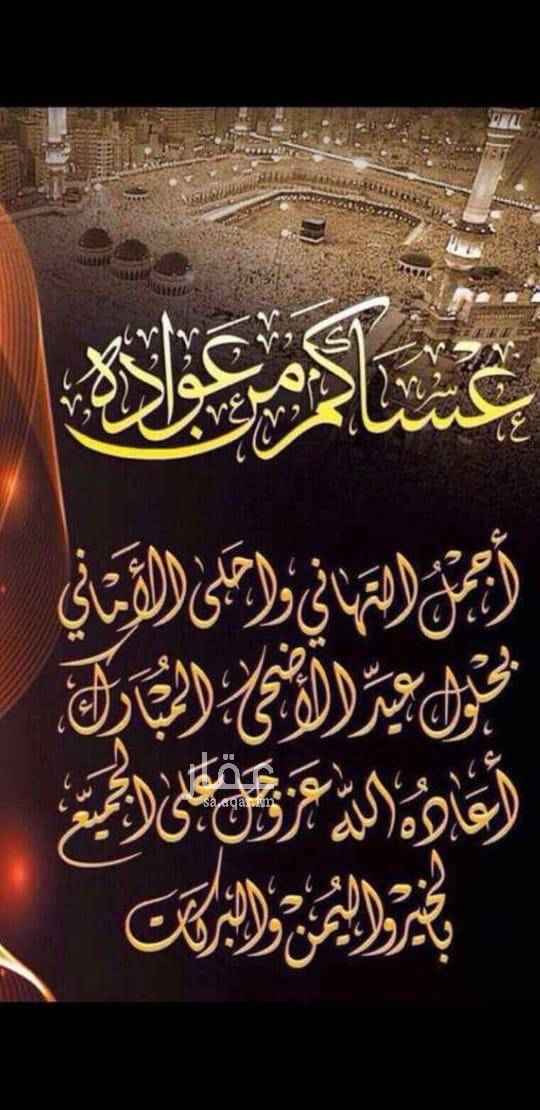 عساكم من عواده
أجمل التهاني واحلى الأماني
بحلول عيد الأضحى المبارك
عقار
sa.aqar.fm
أعاده الله عز وجل على الجميع
بالخير واليمن والبركات